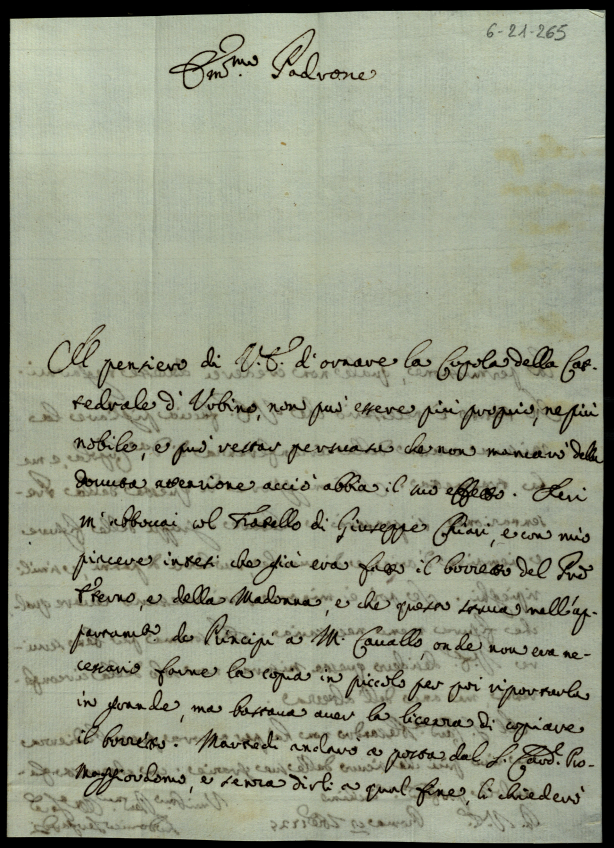 6-21-265
Em.mo Padrone
Il pensiero di V.E. d'ornare la Cupola della Cat-
tedrale d'Urbino, non può essere più proprio, ne più
nobile, e può restar persuasa che non mancarò della
dovuta attenzione acciò abbia il suo effetto. Ieri
m'abboccai col Fratello di Giuseppe Chiari, e con mio
piacere intesi che già era fatto il bozzetto del Pre
Eterno, e della Madonna, e che questo stava nell'ap-
partam.to de Principi a M. Cavallo, onde non era ne-
cessario farne la copia in piccolo per poi riportarla
in grande, ma bastava aver la licenza di copiare
il bozzetto. Martedì andarò a posta dal S. Card. Pro-
Maggiordomo, e senza dirli a qual fine, li chiederò